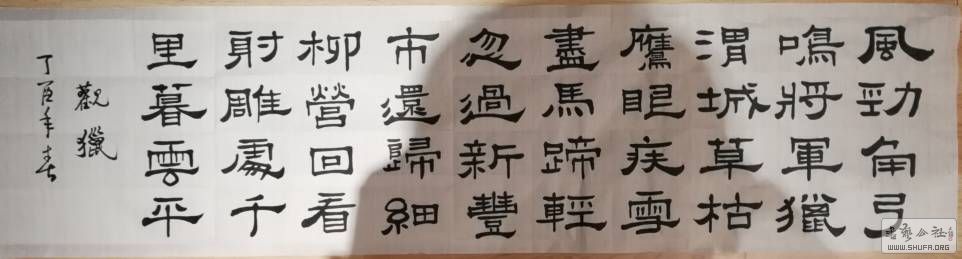 風勁角弓
鳴將軍獵
渭城草枯
鷹眼疾雪
盡馬蹄輕
忽過新豐
市還歸細
柳營回看
射雕處千
里暮雲平
觀獵
丁酉年春
書藝公社
WWW.SHUFA.ORG